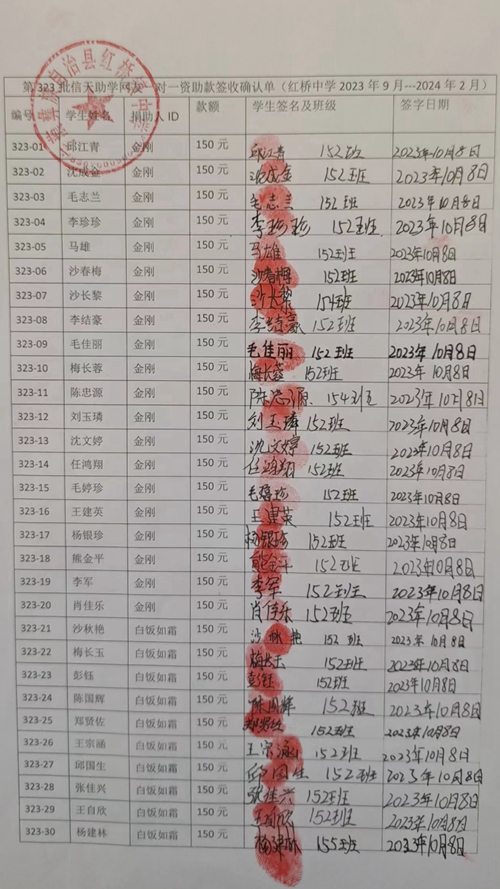 第323批信天助学网友一对一资助款签收确认单（红桥中学2023年9月---2024年2月）
编号 学生姓名 捐助人ID 款额 学生签名及班级 签字日期
323-01 邱江青 金刚 150元 邱江青 152班 2023年10月8日
323-02 沈成金 金刚 150元 沈成金 152班 2023年10月8日
323-03 毛志兰 金刚 150元 毛志兰 152班 2023年10月8日
323-04 李珍珍 金刚 150元 李珍珍 152班 2023年10月8日
323-05 马雄 金刚 150元 马雄 152班 2023年10月8日
323-06 沙春梅 金刚 150元 沙春梅 152班 2023年10月8日
323-07 沙长黎 金刚 150元 沙长黎 154班 2023年10月8日
323-08 李结豪 金刚 150元 李结豪 152班 2023年10月8日
323-09 毛佳丽 金刚 150元 毛佳丽 152班 2023年10月8日
323-10 梅长蓉 金刚 150元 梅长蓉 152班 2023年10月8日
323-11 陈忠源 金刚 150元 陈忠源 154班 2023年10月8日
323-12 刘玉璘 金刚 150元 刘玉璘 152班 2023年10月8日
323-13 沈文婷 金刚 150元 沈文婷 152班 2023年10月8日
323-14 任鸿翔 金刚 150元 任鸿翔 152班 2023年10月8日
323-15 毛婷珍 金刚 150元 毛婷珍 152班 2023年10月8日
323-16 王建英 金刚 150元 王建英 152班 2023年10月8日
323-17 杨银珍 金刚 150元 杨银珍 152班 2023年10月8日
323-18 熊金平 金刚 150元 熊金平 152班 2023年10月8日
323-19 李军 金刚 150元 李军 152班 2023年10月8日
323-20 肖佳乐 金刚 150元 肖佳乐 152班 2023年10月8日
323-21 沙秋艳 白饭如霜 150元 沙秋艳 152班 2023年10月8日
323-22 梅长玉 白饭如霜 150元 梅长玉 152班 2023年10月8日
323-23 彭钰 白饭如霜 150元 彭钰 152班 2023年10月8日
323-24 陈国辉 白饭如霜 150元 陈国辉 152班 2023年10月8日
323-25 郑贤佐 白饭如霜 150元 郑贤佐 152班 2023年10月8日
323-26 王宗涵 白饭如霜 150元 王宗涵 152班 2023年10月8日
323-27 邱国生 白饭如霜 150元 邱国生 152班 2023年10月8日
323-28 张佳兴 白饭如霜 150元 张佳兴 152班 2023年10月8日
323-29 王自欣 白饭如霜 150元 王自欣 152班 2023年10月8日
323-30 杨建林 白饭如霜 150元 杨建林 155班 2023年10月8日